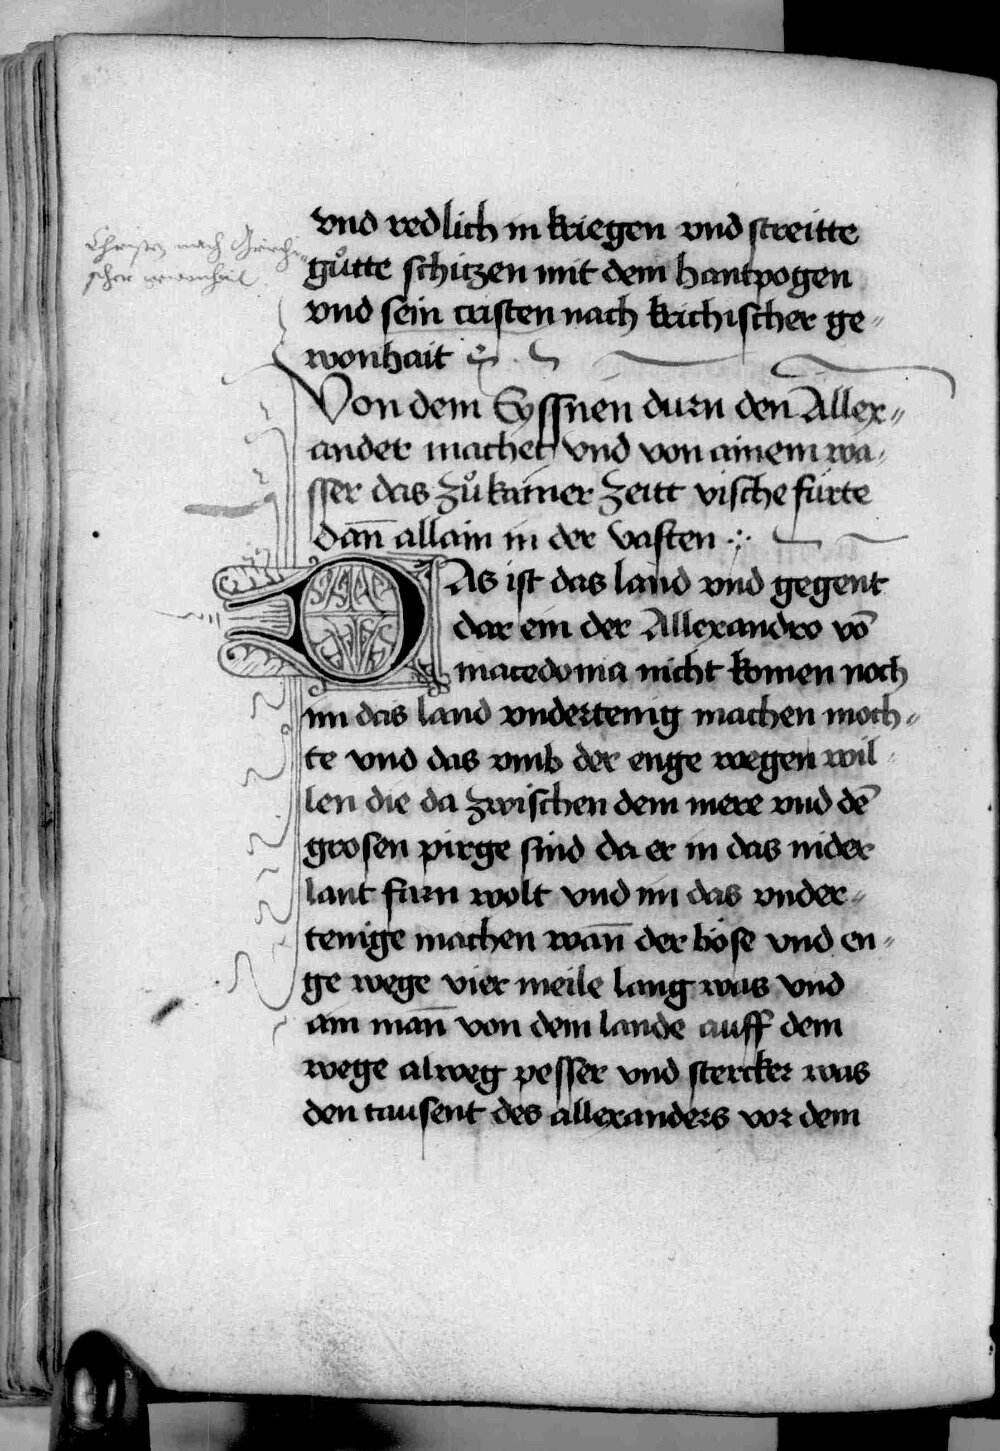 Christen nach Griechi-
scher gewonhait
vnd redlich in kriegen vnd streitte
gůtte schitzen mit dem hantpogen
vnd sein cristen nach krichischer ge-
wonhait
Von dem Eyssnen durn den Allex-
ander machet vnd von ainem wa-
sser das zů kainer zeitt vische fürte
dan̄ allain in der vasten
DAs ist das land vnd gegent
dar ein der Allexandro vō
macedonia nicht komen noch
im das land vndertenig machen moch-
te vnd das vmb der enge wegen wil-
len die da zwischen dem mere vnd dē
grosen pirge sind da er in das nider
lant farn wolt vnd im das vnder-
tenige machen wan̄ der böse vnd en-
ge wege vier meile lang was vnd
ain man̄ von dem lande auff dem
wege alweg pesser vnd stercker was
den tausent des allexanders vor dem